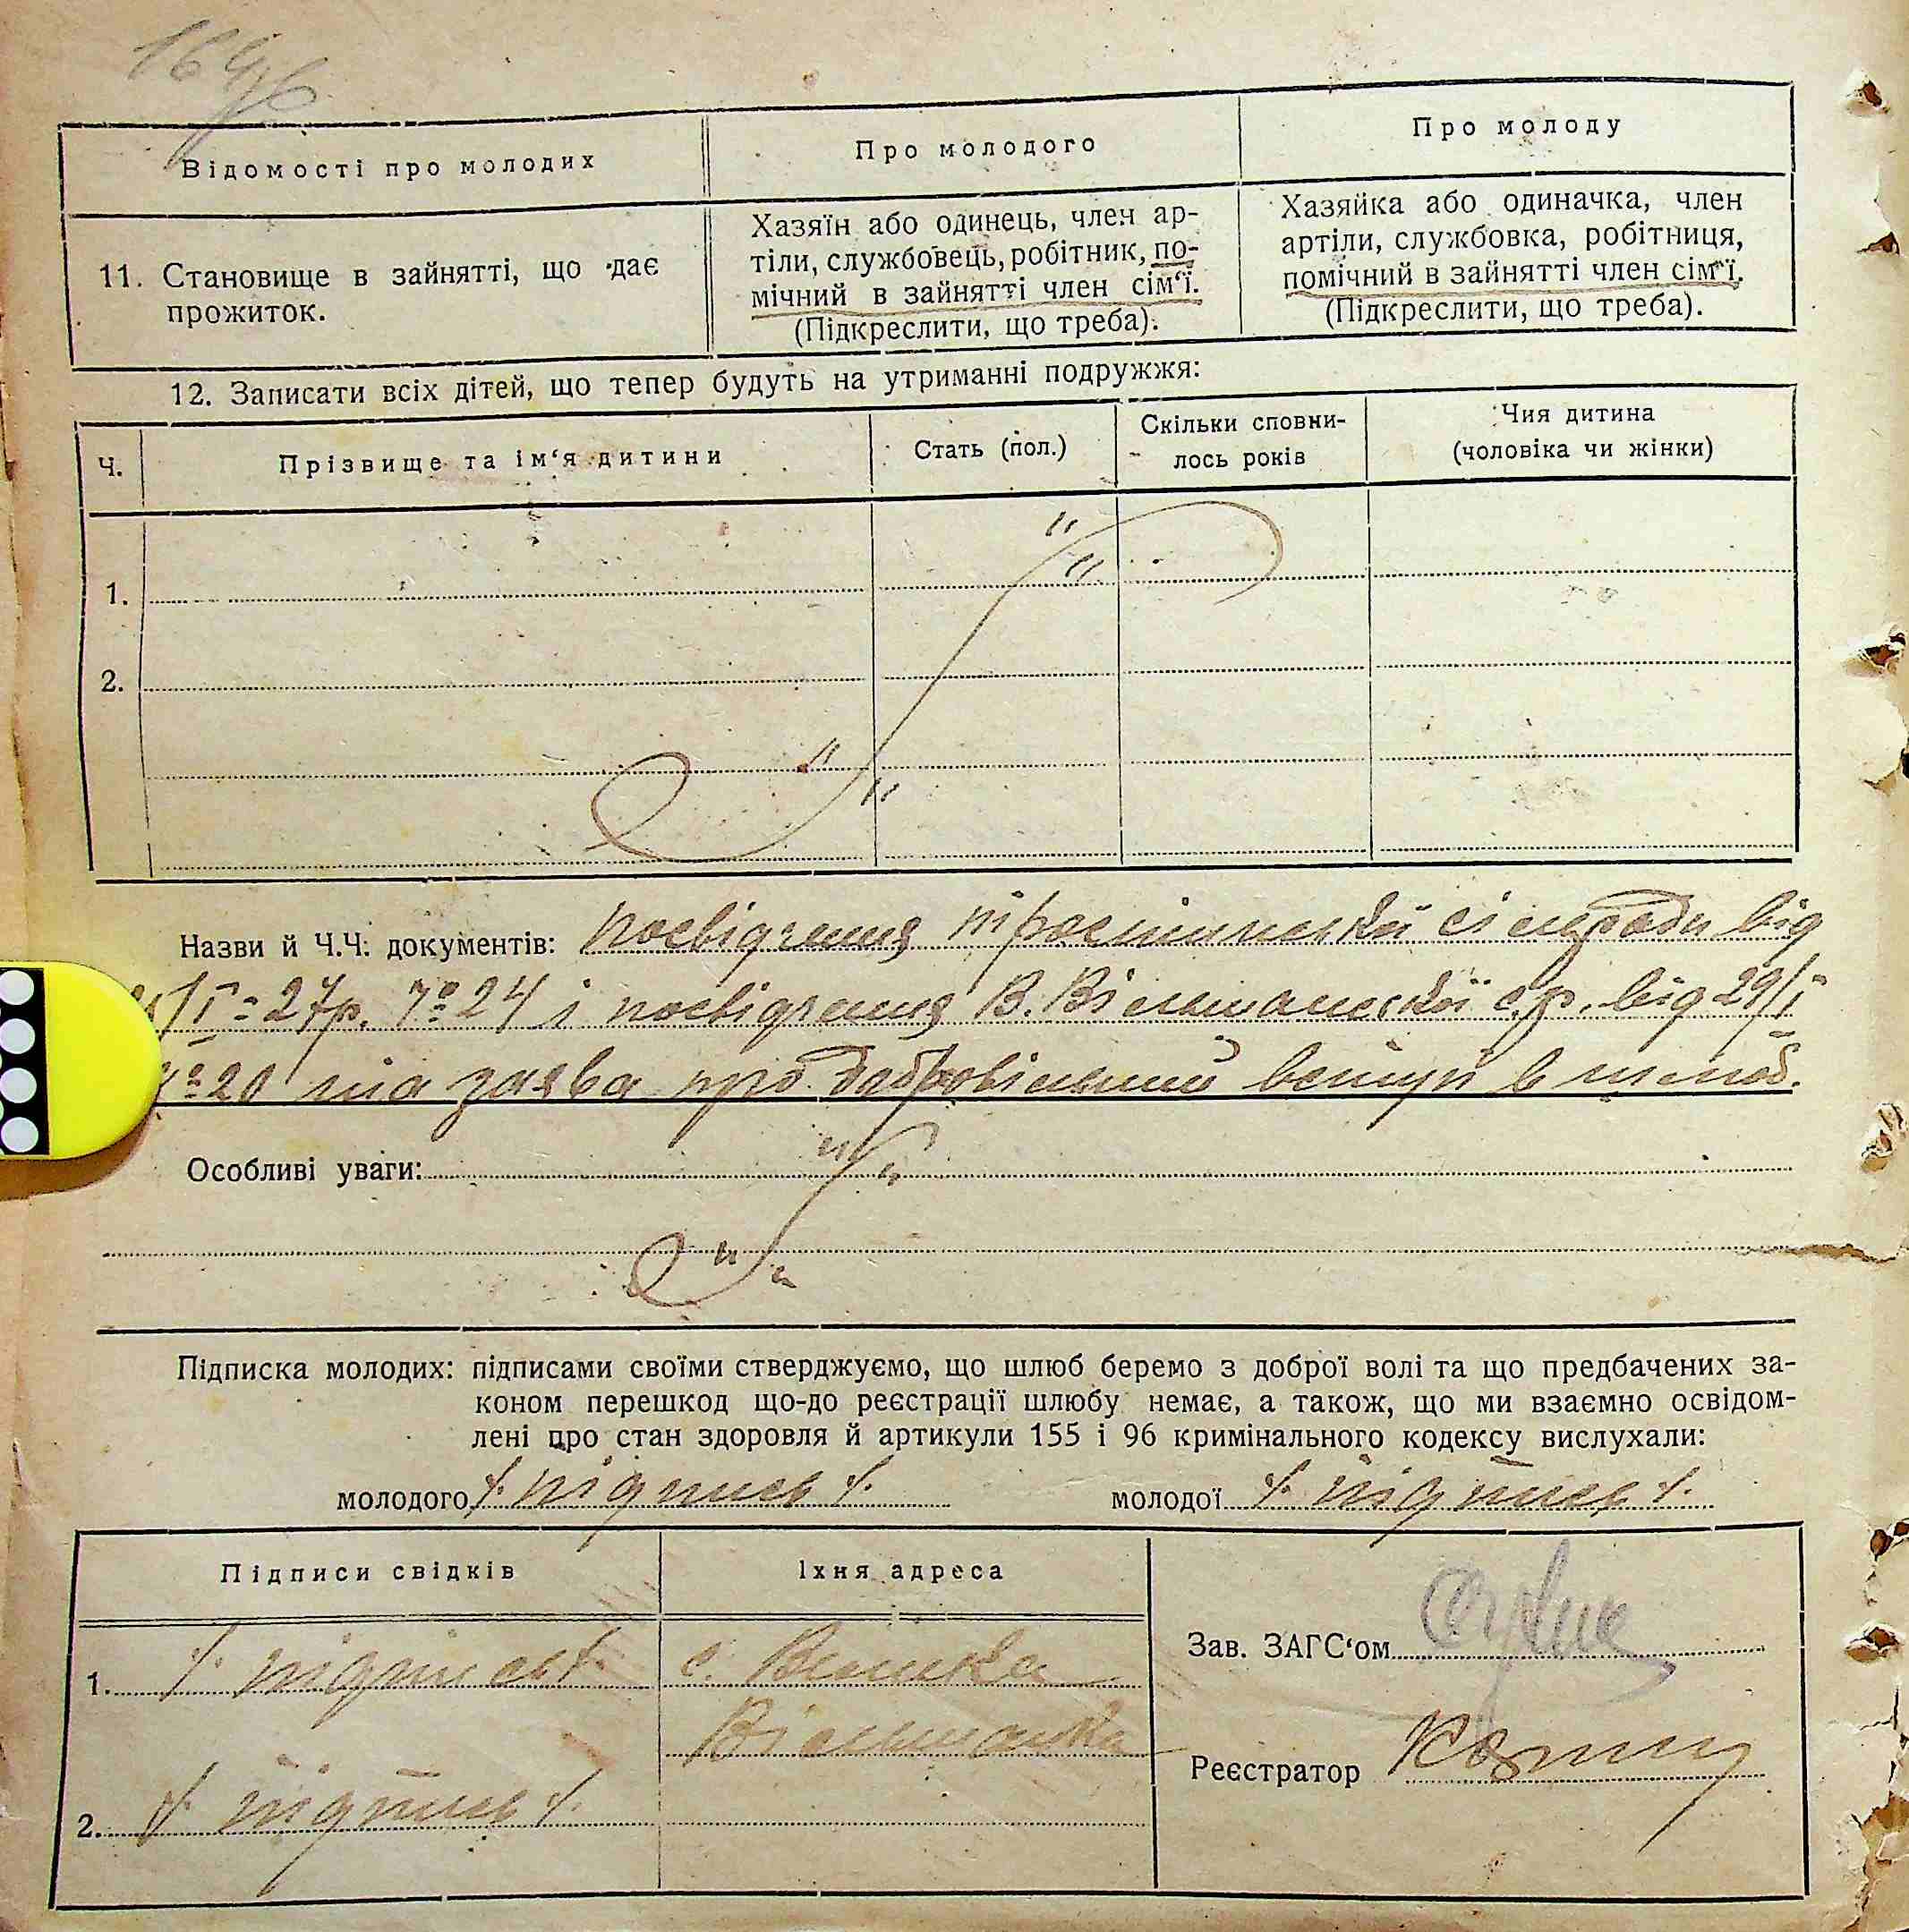 Відомості про молодих
Про молодого
Про молоду
11. Становище в зайнятті, що дає
прожиток.
Хазяїн або одинець, член ар-
тіли, службовець, робітник, по-
мічний в зайнятті член сім‘ї.
(Підкреслити, що треба).
Хазяйка або одиначка, член
артіли, службовка, робітниця,
помічний в зайнятті член сім‘ї.
(Підкреслити, що треба).
12. Записати всіх дітей, що тепер будуть на утриманні подружжя:
Ч.
Прізвище та ім‘я дитини
Стать (пол.)
Скільки сповни-
лось років
Чия дитина
(чоловіка чи жінки)
1.
2.
Назви й Ч.Ч. документів: посвідчення сільради від
27р. № 24 і посвідчення В. Вільшанської с.р. від 29/I
№ 20 та заява про добровільний вступ в шлюб.
Особливі уваги:
Підписка молодих: підписами своїми стверджуємо, що шлюб беремо з доброї волі та що предбачених за-
коном перешкод що-до реєстрації шлюбу немає, а також, що ми взаємно освідом-
лені про стан здоровля й артикули 155 і 96 кримінального кодексу вислухали:
молодого /. підпись /. молодої /. підпись /.
Підписи свідків
Їхня адреса
1. /. підпись /. с. Велика
Вільшанка
2. /. підпись /.
Зав. ЗАГС‘ом
Реєстратор